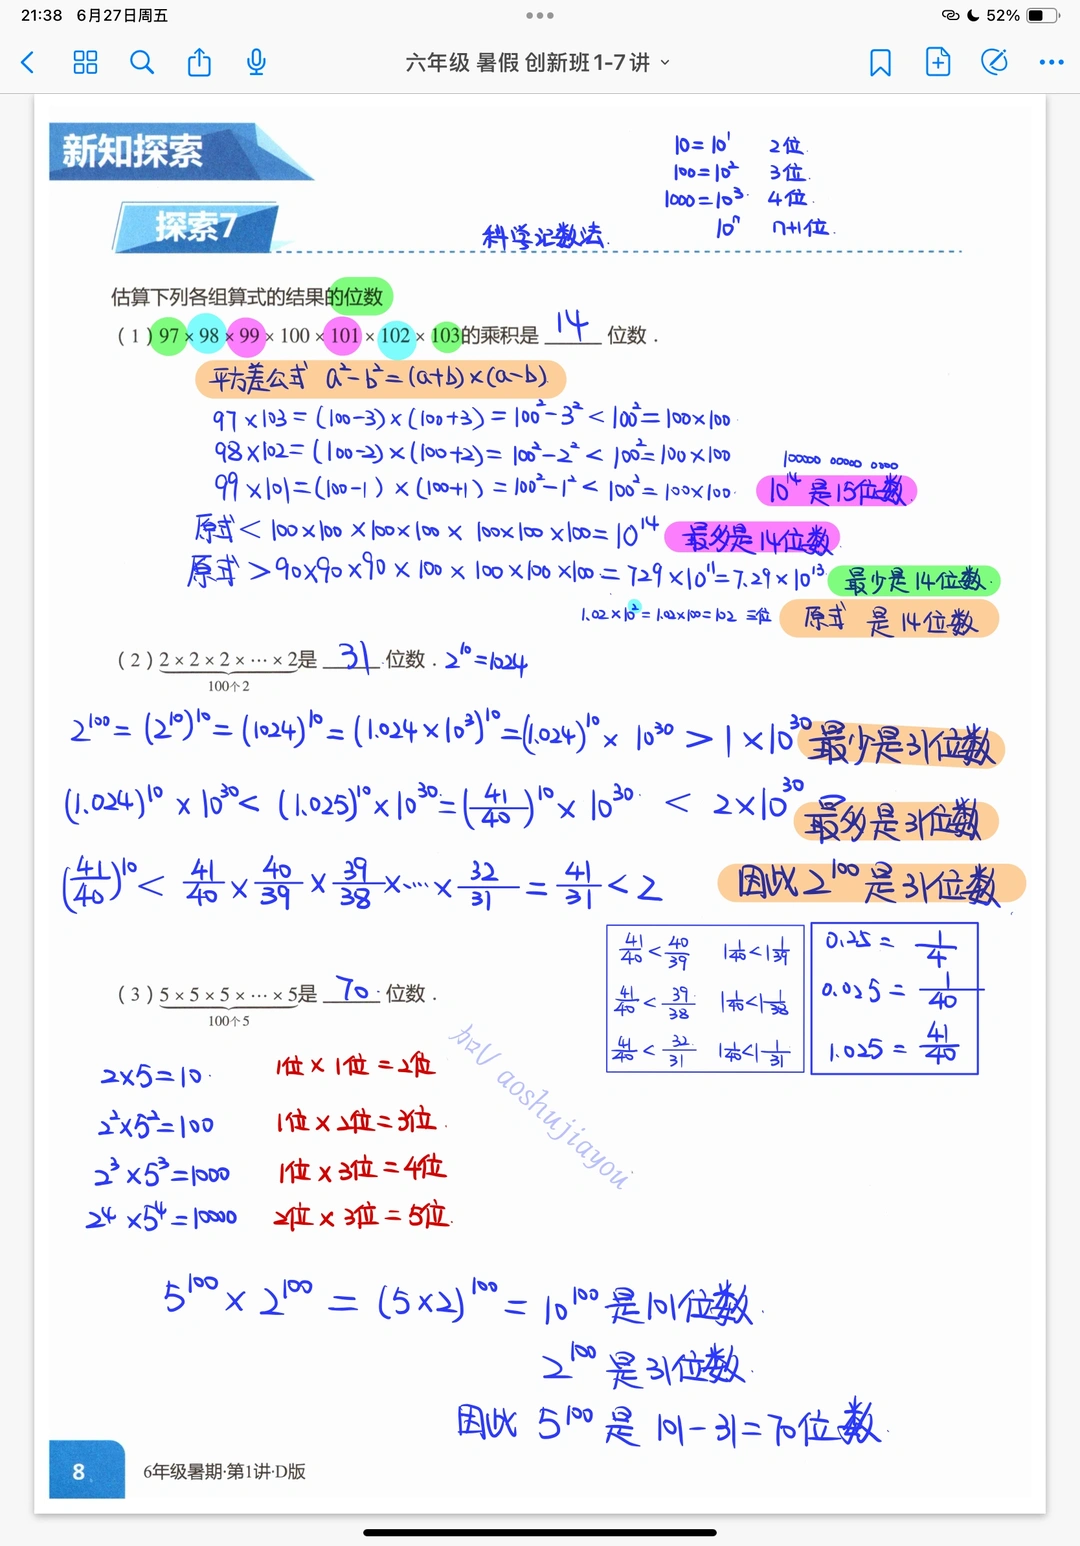 21:38 6月27日周五
52%
六年级 暑假 创新班1-7讲
新知探索
10=10¹ 2位.
100=10² 3位.
1000=10³ 4位.
10ⁿ n+1位.
探索7
科学记数法.
估算下列各组算式的结果的位数
(1) 97×98×99×100×101×102×103的乘积是 14 位数.
平方差公式 a²-b²=(a+b)×(a-b)
97×103=(100-3)×(100+3)=100²-3²<100²=100×100
98×102=(100-2)×(100+2)=100²-2²<100²=100×100
100000 00000 0000
99×101=(100-1)×(100+1)=100²-1²<100²=100×100. 10¹⁴是15位数.
原式<100×100×100×100×100×100×100=10¹⁴ 最多是14位数.
原式>90×90×90×100×100×100×100=729×10¹¹=7.29×10¹³. 最少是14位数.
1.02×10²=1.02×100=102 三位 原式 是14位数
(2) 2×2×2×⋯×2是 31 位数. 2¹⁰=1024
100个2
2¹⁰⁰=(2¹⁰)¹⁰=(1024)¹⁰=(1.024×10³)¹⁰=(1.024)¹⁰×10³⁰>1×10³⁰ 最少是31位数
(1.024)¹⁰×10³⁰<(1.025)¹⁰×10³⁰=(41/40)¹⁰×10³⁰<2×10³⁰
最多是31位数
(41/40)¹⁰<41/40×40/39×39/38×⋯×32/31=41/31<2 因此2¹⁰⁰是31位数
41/40<40/39 1 1/40<1 1/39
41/40<39/38 1 1/40<1 1/38
41/40<32/31 1 1/40<1 1/31
0.25=1/4
0.025=1/40
1.025=41/40
(3) 5×5×5×⋯×5是 70 位数.
100个5
加V aoshujiayou
2×5=10. 1位×1位=2位
2²×5²=100 1位×2位=3位.
2³×5³=1000 1位×3位=4位
2⁴×5⁴=10000 2位×3位=5位.
5¹⁰⁰×2¹⁰⁰=(5×2)¹⁰⁰=10¹⁰⁰是101位数.
2¹⁰⁰是31位数.
因此 5¹⁰⁰是 101-31=70位数.
8
6年级暑期·第1讲·D版